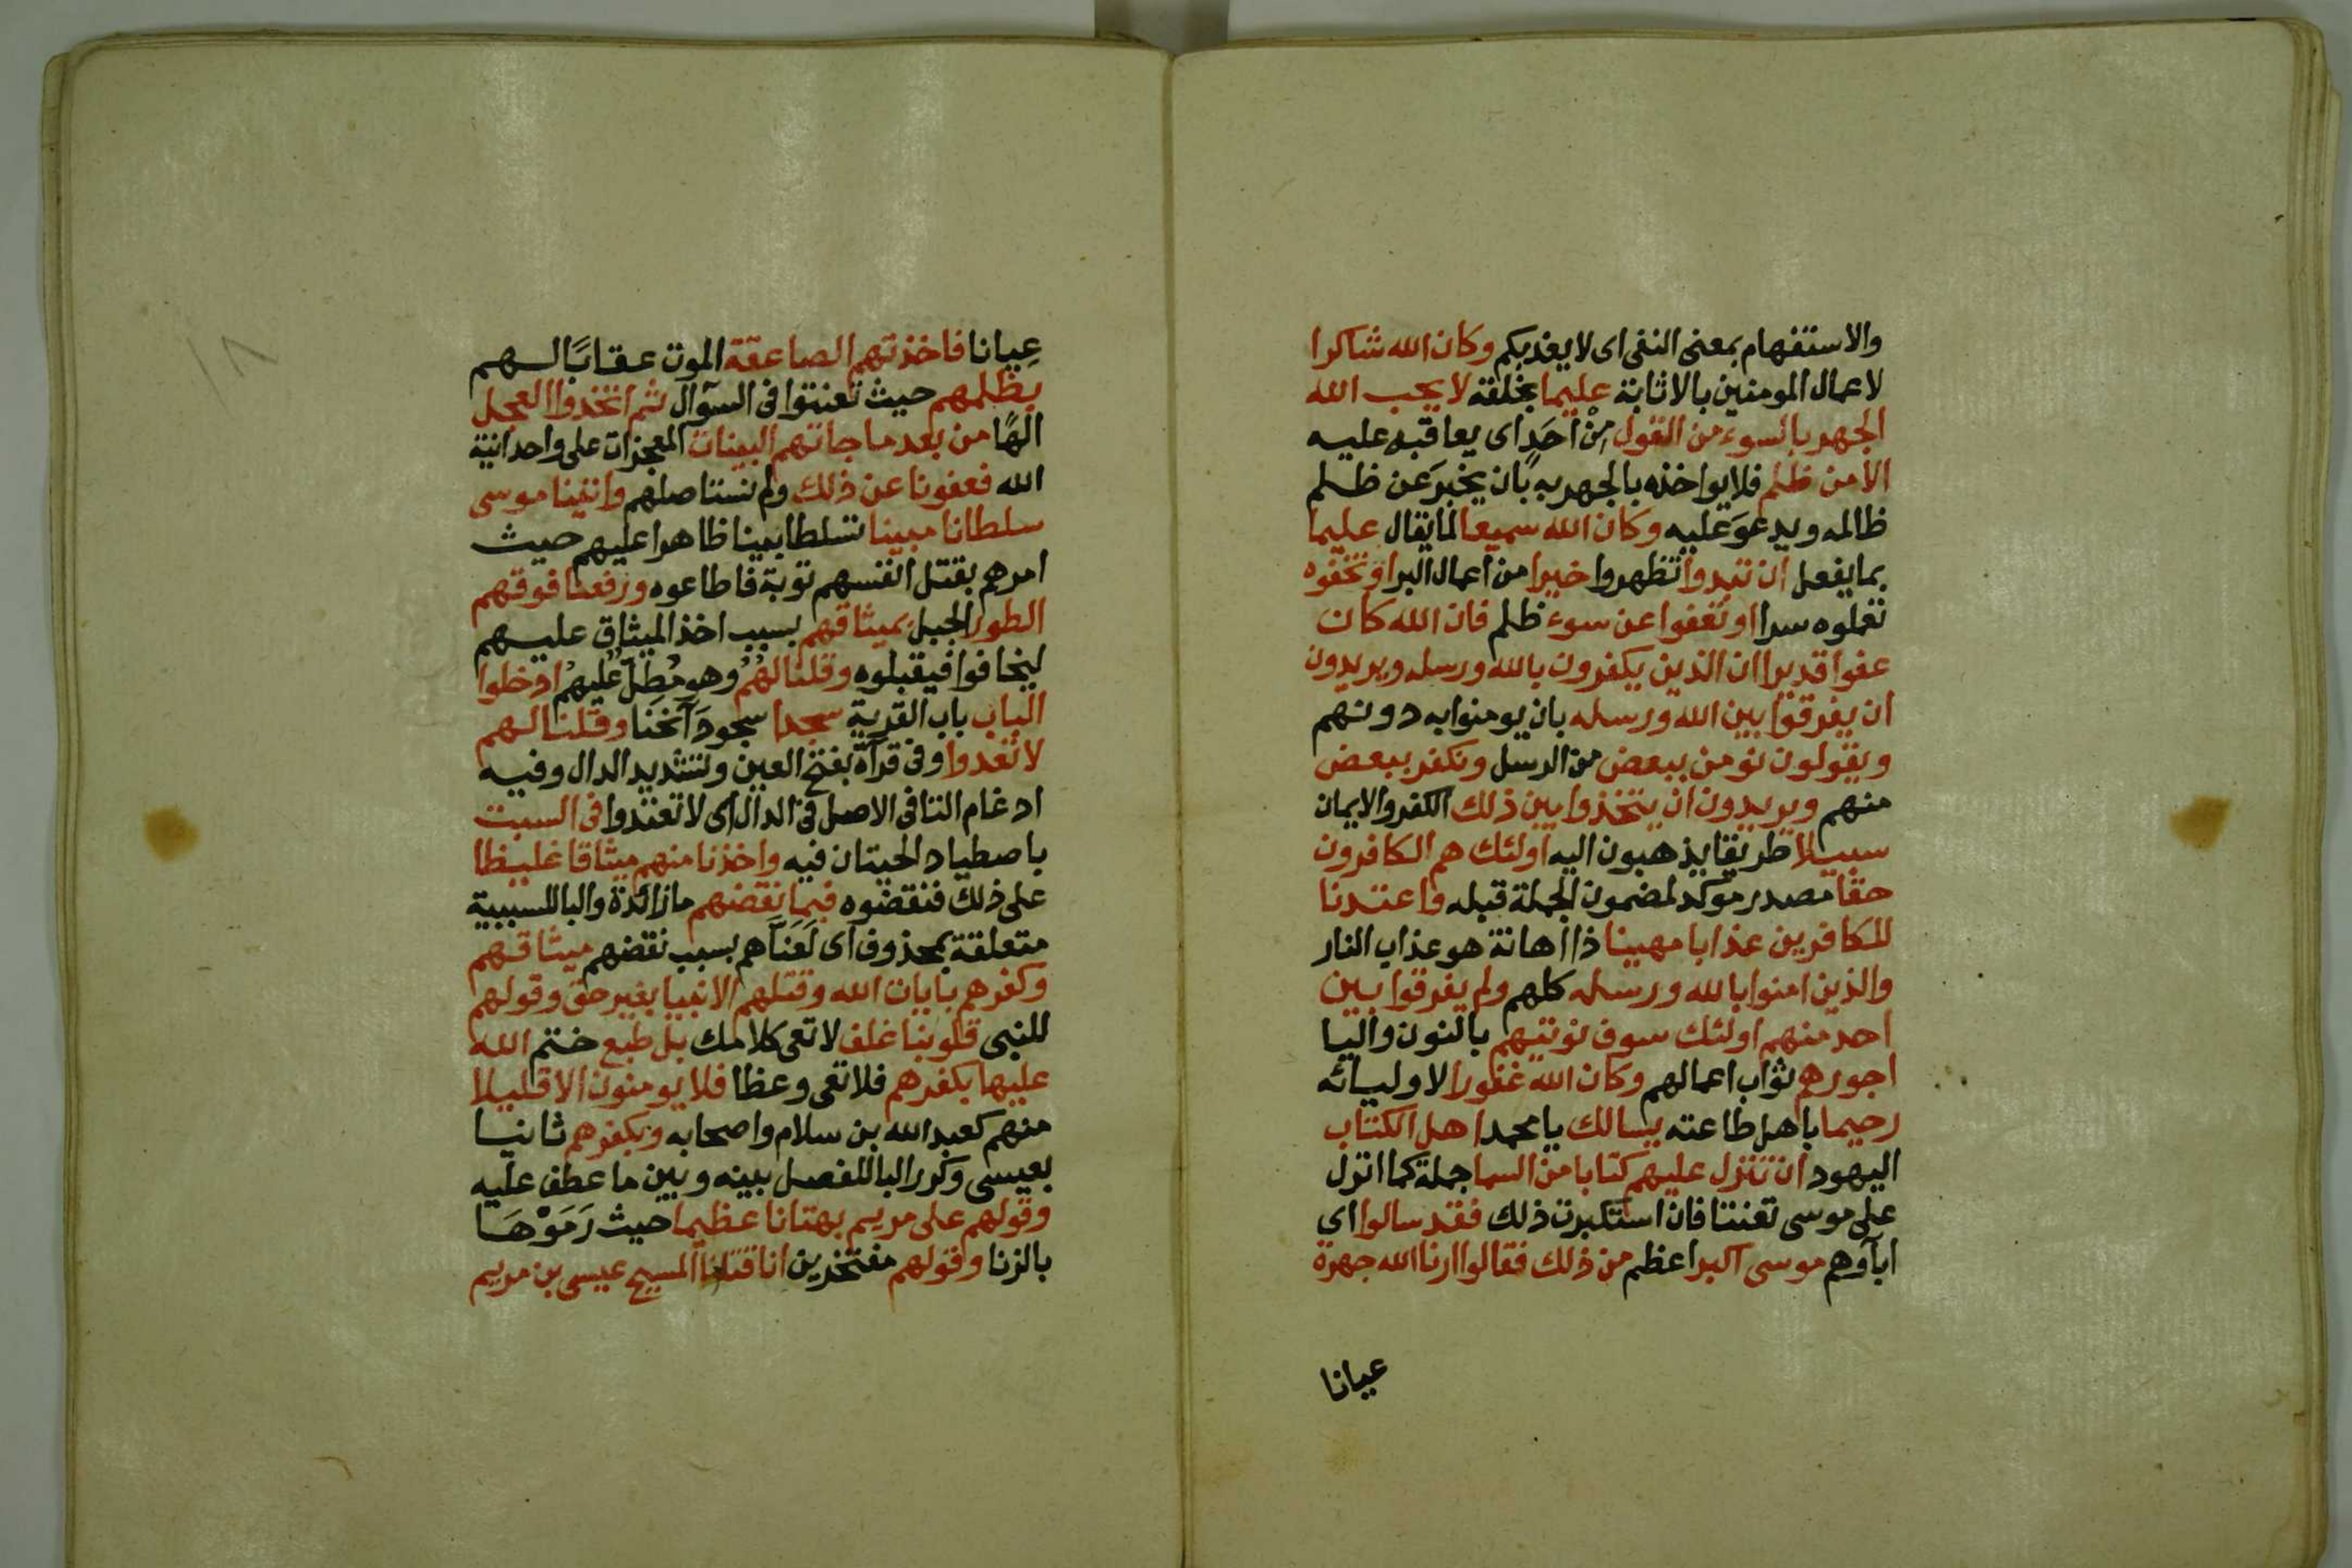 والاستفهام بمعنى النفى اى لا يعذبكم وكان الله شاكرا
لاعمال المومنين بالاثابة عليما بخلقه لا يحب الله
الجهر بالسوء من القول مِنْ اَحَدٍ اى يعاقب عليه
الا من ظلم فلا يواخذه بالجهر به بان يخبرَ عن ظلم
ظالمه ويدعوَ عليه وكان الله سميعا لما يقال عليما
بما يفعل ان تبدوا تظهروا خيرا من اعمال البر او تخفوه
تعملوه سرا او تعفوا عن سوء ظلم فان الله كان
عفوا قديرا ان الذين يكفرون بالله ورسله ويريدون
ان يفرقوا بين الله ورسله بان يومنوا به دونهم
ويقولون نومن ببعض من الرسل ونكفر ببعض
منهم ويريدون ان يتخذوا بين ذلك الكفر والايمان
سبيلا طريقا يذهبون اليه اولئك هم الكافرون
حقا مصدر موكد لمضمون الجملة قبله واعتدنا
للكافرين عذابا مهينا ذا اهانة هو عذاب النار
والذين امنوا بالله ورسله كلهم ولم يفرقوا بين
احد منهم اولئك سوف نوتيهم بالنون واليا
اجورهم ثواب اعمالهم وكان الله غفورا لاوليائه
رحيما باهل طاعته يسالك يا محمد اهل الكتاب
اليهود ان تنزل عليهم كتابا من السما جملة كما انزل
على موسى تعنتا فان استكبرت ذلك فقد سالوا اى
اباؤهم موسى اكبر اعظم من ذلك فقالوا ارنا الله جهرة
عيانا
عِيانا فاخذتهم الصاعقة الموت عقابًا لهم
بظلمهم حيث تعنتوا فى السؤال ثم اتخذوا العجل
الهًا من بعد ما جاتهم البينات المعجزات على واحدانية
الله فعفونا عن ذلك ولم نستاصلهم واتينا موسى
سلطانا مبينا تسلطا بينا ظاهرا عليهم حيث
امرهم بقتل انفسهم توبة فاطاعوه ورفعنا فوقهم
الطور الجبل بميثاقهم بسبب اخذ الميثاق عليهم
ليخافوا فيقبلوه وقلنا لهم وهو مُطِلّ عليهم ادخلوا
الباب باب القرية سجدا سجودَ انحنا وقلنا لهم
لا تعدوا وفى قرآة بفتح العين وتشديد الدال وفيه
ادغام التا فى الاصل فى الدال اى لا تعتدوا فى السبت
باصطياد الحيتان فيه واخذنا منهم ميثاقا غليظا
على ذلك فنقضوه فبما نقضهم ما زائدة والبا للسببية
متعلقة بمحذوف اى لَعَنَّاهم بسبب نقضهم ميثاقهم
وكفرهم بايات الله وقتلهم الانبيا بغير حق وقولهم
للنبى قلوبنا غلف لا تعى كلامك بل طبع ختم الله
عليها بكفرهم فلا تعى وعظا فلا يومنون الا قليلا
منهم كعبد الله بن سلام واصحابه وبكفرهم ثانيا
بعيسى وكرر البا للفصل بينه وبين ما عطف عليه
وقولهم على مريم بهتانا عظيما حيث رَمَوْهَا
بالزنا وقولهم مفتخرين انا قتلنا المسيح عيسى بن مريم